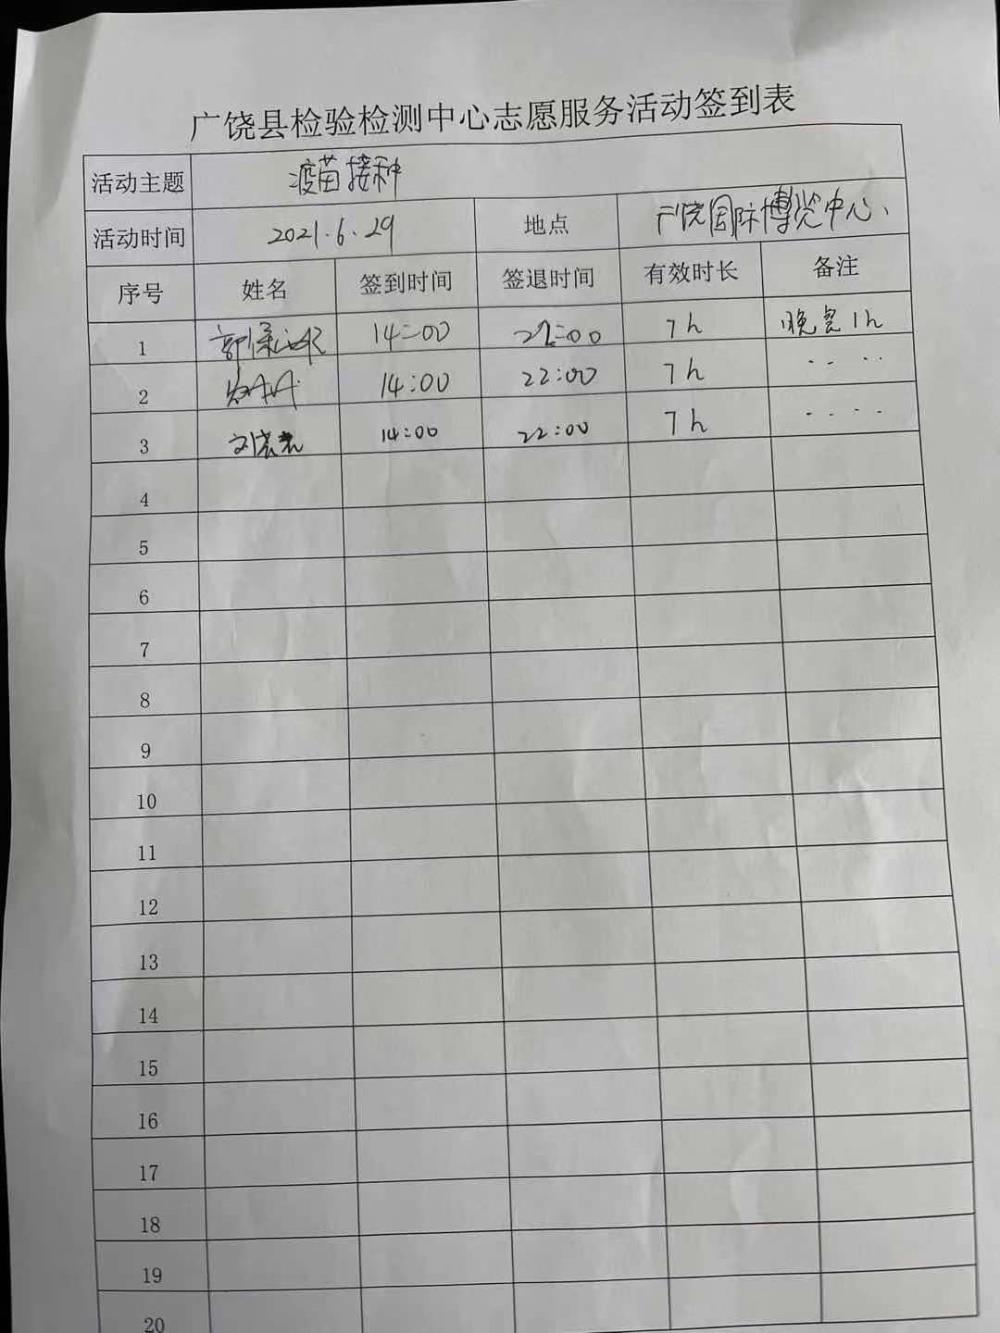 广饶县检验检测中心志愿服务活动签到表
活动主题 疫苗接种
活动时间 2021.6.29 地点 广饶国际博览中心、
序号 姓名 签到时间 签退时间 有效时长 备注
1 14:00 22:00 7h 晚宴1h
2 14:00 22:00 7h ‥ ‥
3 14:00 22:00 7h ‥ ‥
4
5
6
7
8
9
10
11
12
13
14
15
16
17
18
19
20